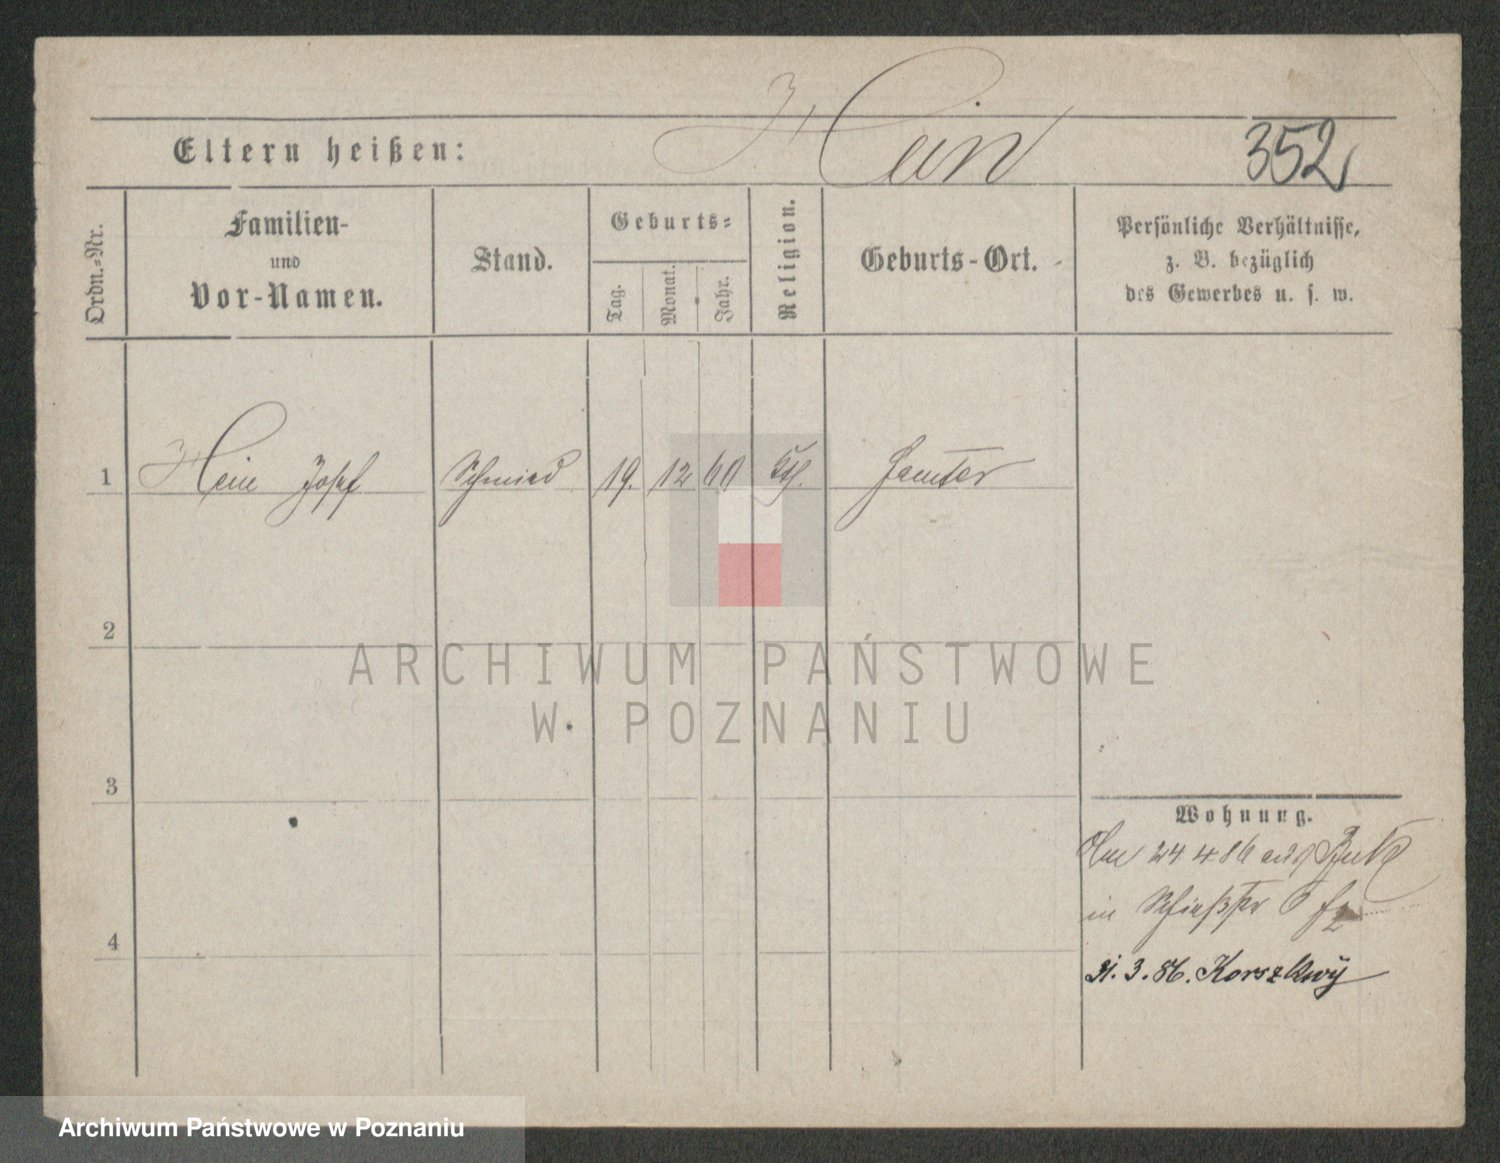 Hein
Eltern heißen: 352
Ordn.-Nr.
Familien-
und
Vor-Namen.
Stand.
Geburts-
Tag.
Monat.
Jahr.
Religion.
Geburts-Ort.
Persönliche Verhältnisse,
z. B. bezüglich
des Gewerbes u. s. w.
1 Hein Josef Schmied 19. 12 60 Kth. Samter
2
ARCHIWUM PAŃSTWOWE
W POZNANIU
3
Wohnung.
24 4 86 aus Buk
in 6
4
31. 3. 86.
Archiwum Państwowe w Poznaniu